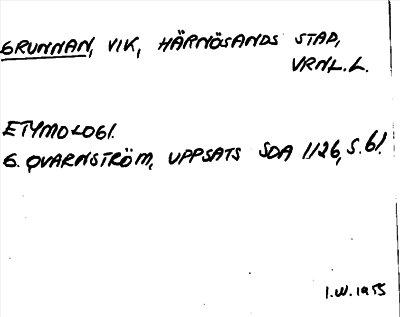 GRUNNAN, VIK, HÄRNÖSANDS STAD,
VRNL.L.
ETYMOLOGI.
G. QVARNSTRÖM, UPPSATS SOA 1126, S. 61.
I.W. 1955